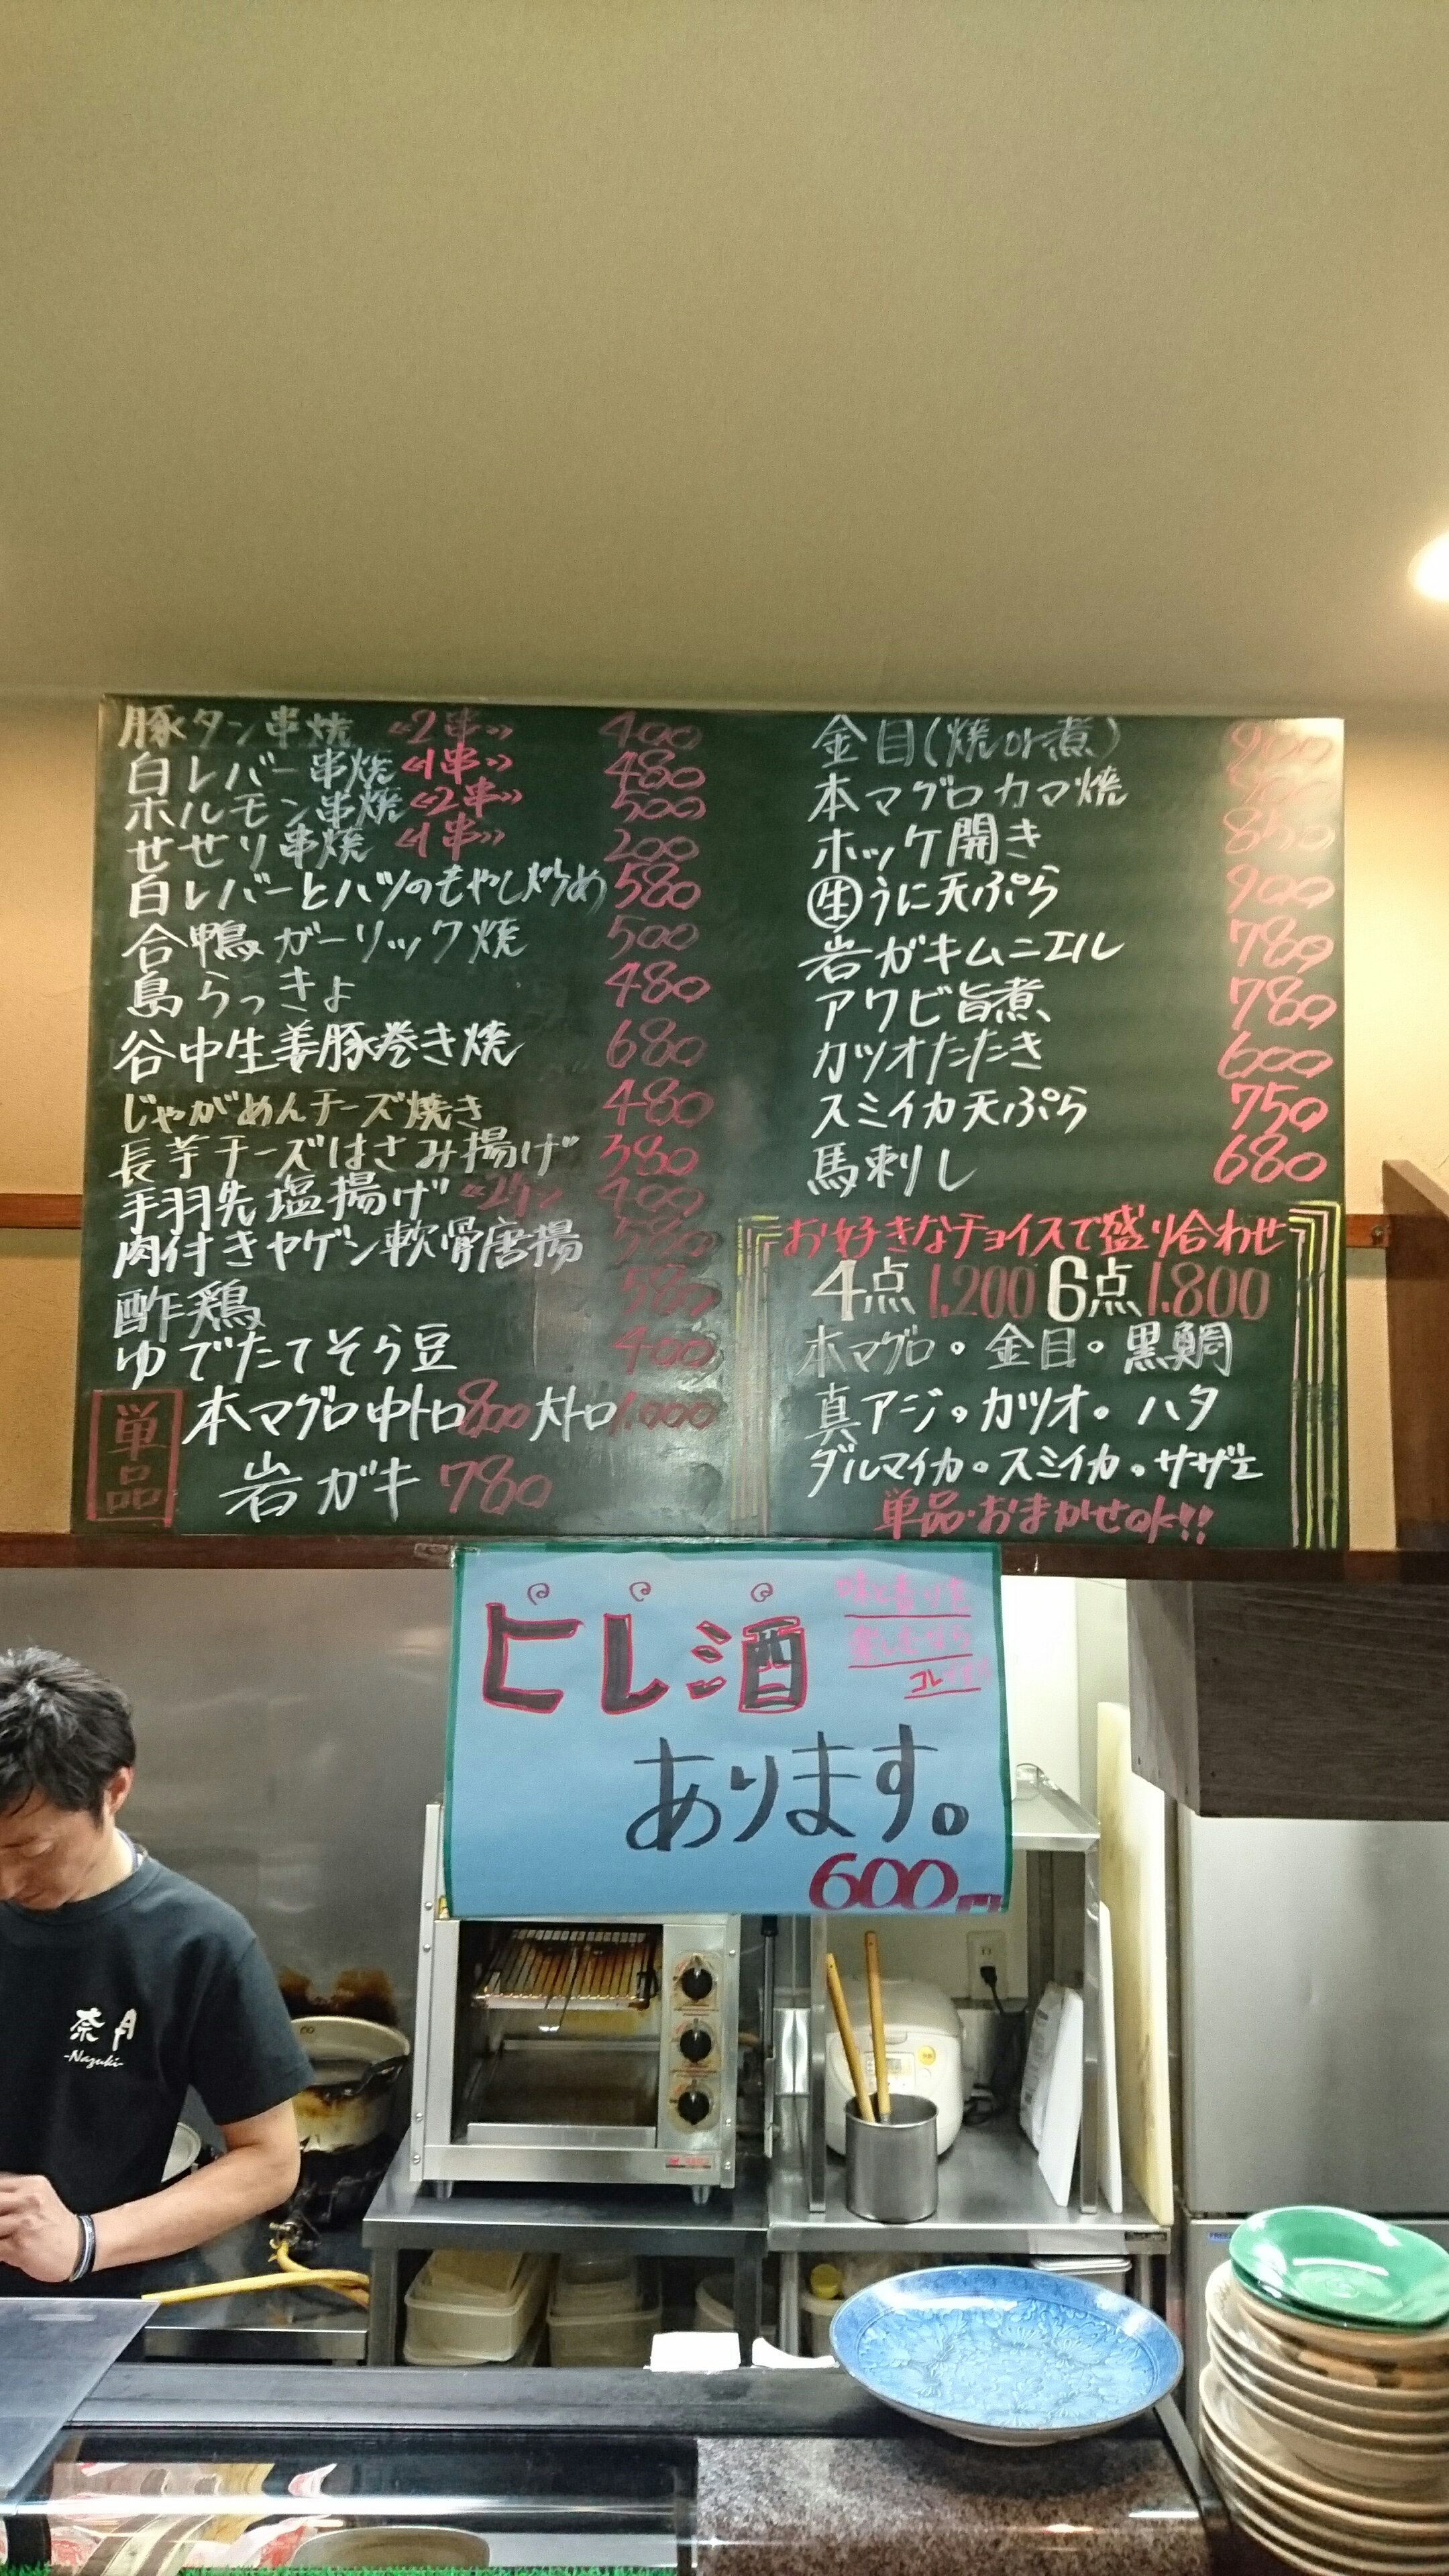 豚タン串焼 «2串» 400
白レバー串焼 «1串» 480
ホルモン串焼 «2串» 500
せせり串焼 «1串» 200
白レバーとハツのもやし炒め 580
合鴨ガーリック焼 500
島らっきょ 480
谷中生姜豚巻き焼 680
じゃがめんチーズ焼き 480
長芋チーズはさみ揚げ 380
手羽先塩揚げ 400
肉付きヤゲン軟骨唐揚 580
酢鶏 580
ゆでたてそら豆 400
単品
本マグロ中トロ800 大トロ1.000
岩ガキ 780
金目(焼or煮) 900
本マグロカマ焼
ホッケ開き 850
生うに天ぷら 900
岩ガキムニエル 780
アワビ旨煮 780
カツオたたき 600
スミイカ天ぷら 750
馬刺し 680
お好きなチョイスで盛り合わせ
4点 1.200 6点 1.800
本マグロ・金目・黒鯛
真アジ・カツオ・ハタ
ダルマイカ・スミイカ・サザエ
単品・おまかせok!!
ヒレ酒
味と香りを
楽しむなら
コレ
あります。
600円
奈月
-Nazuki-